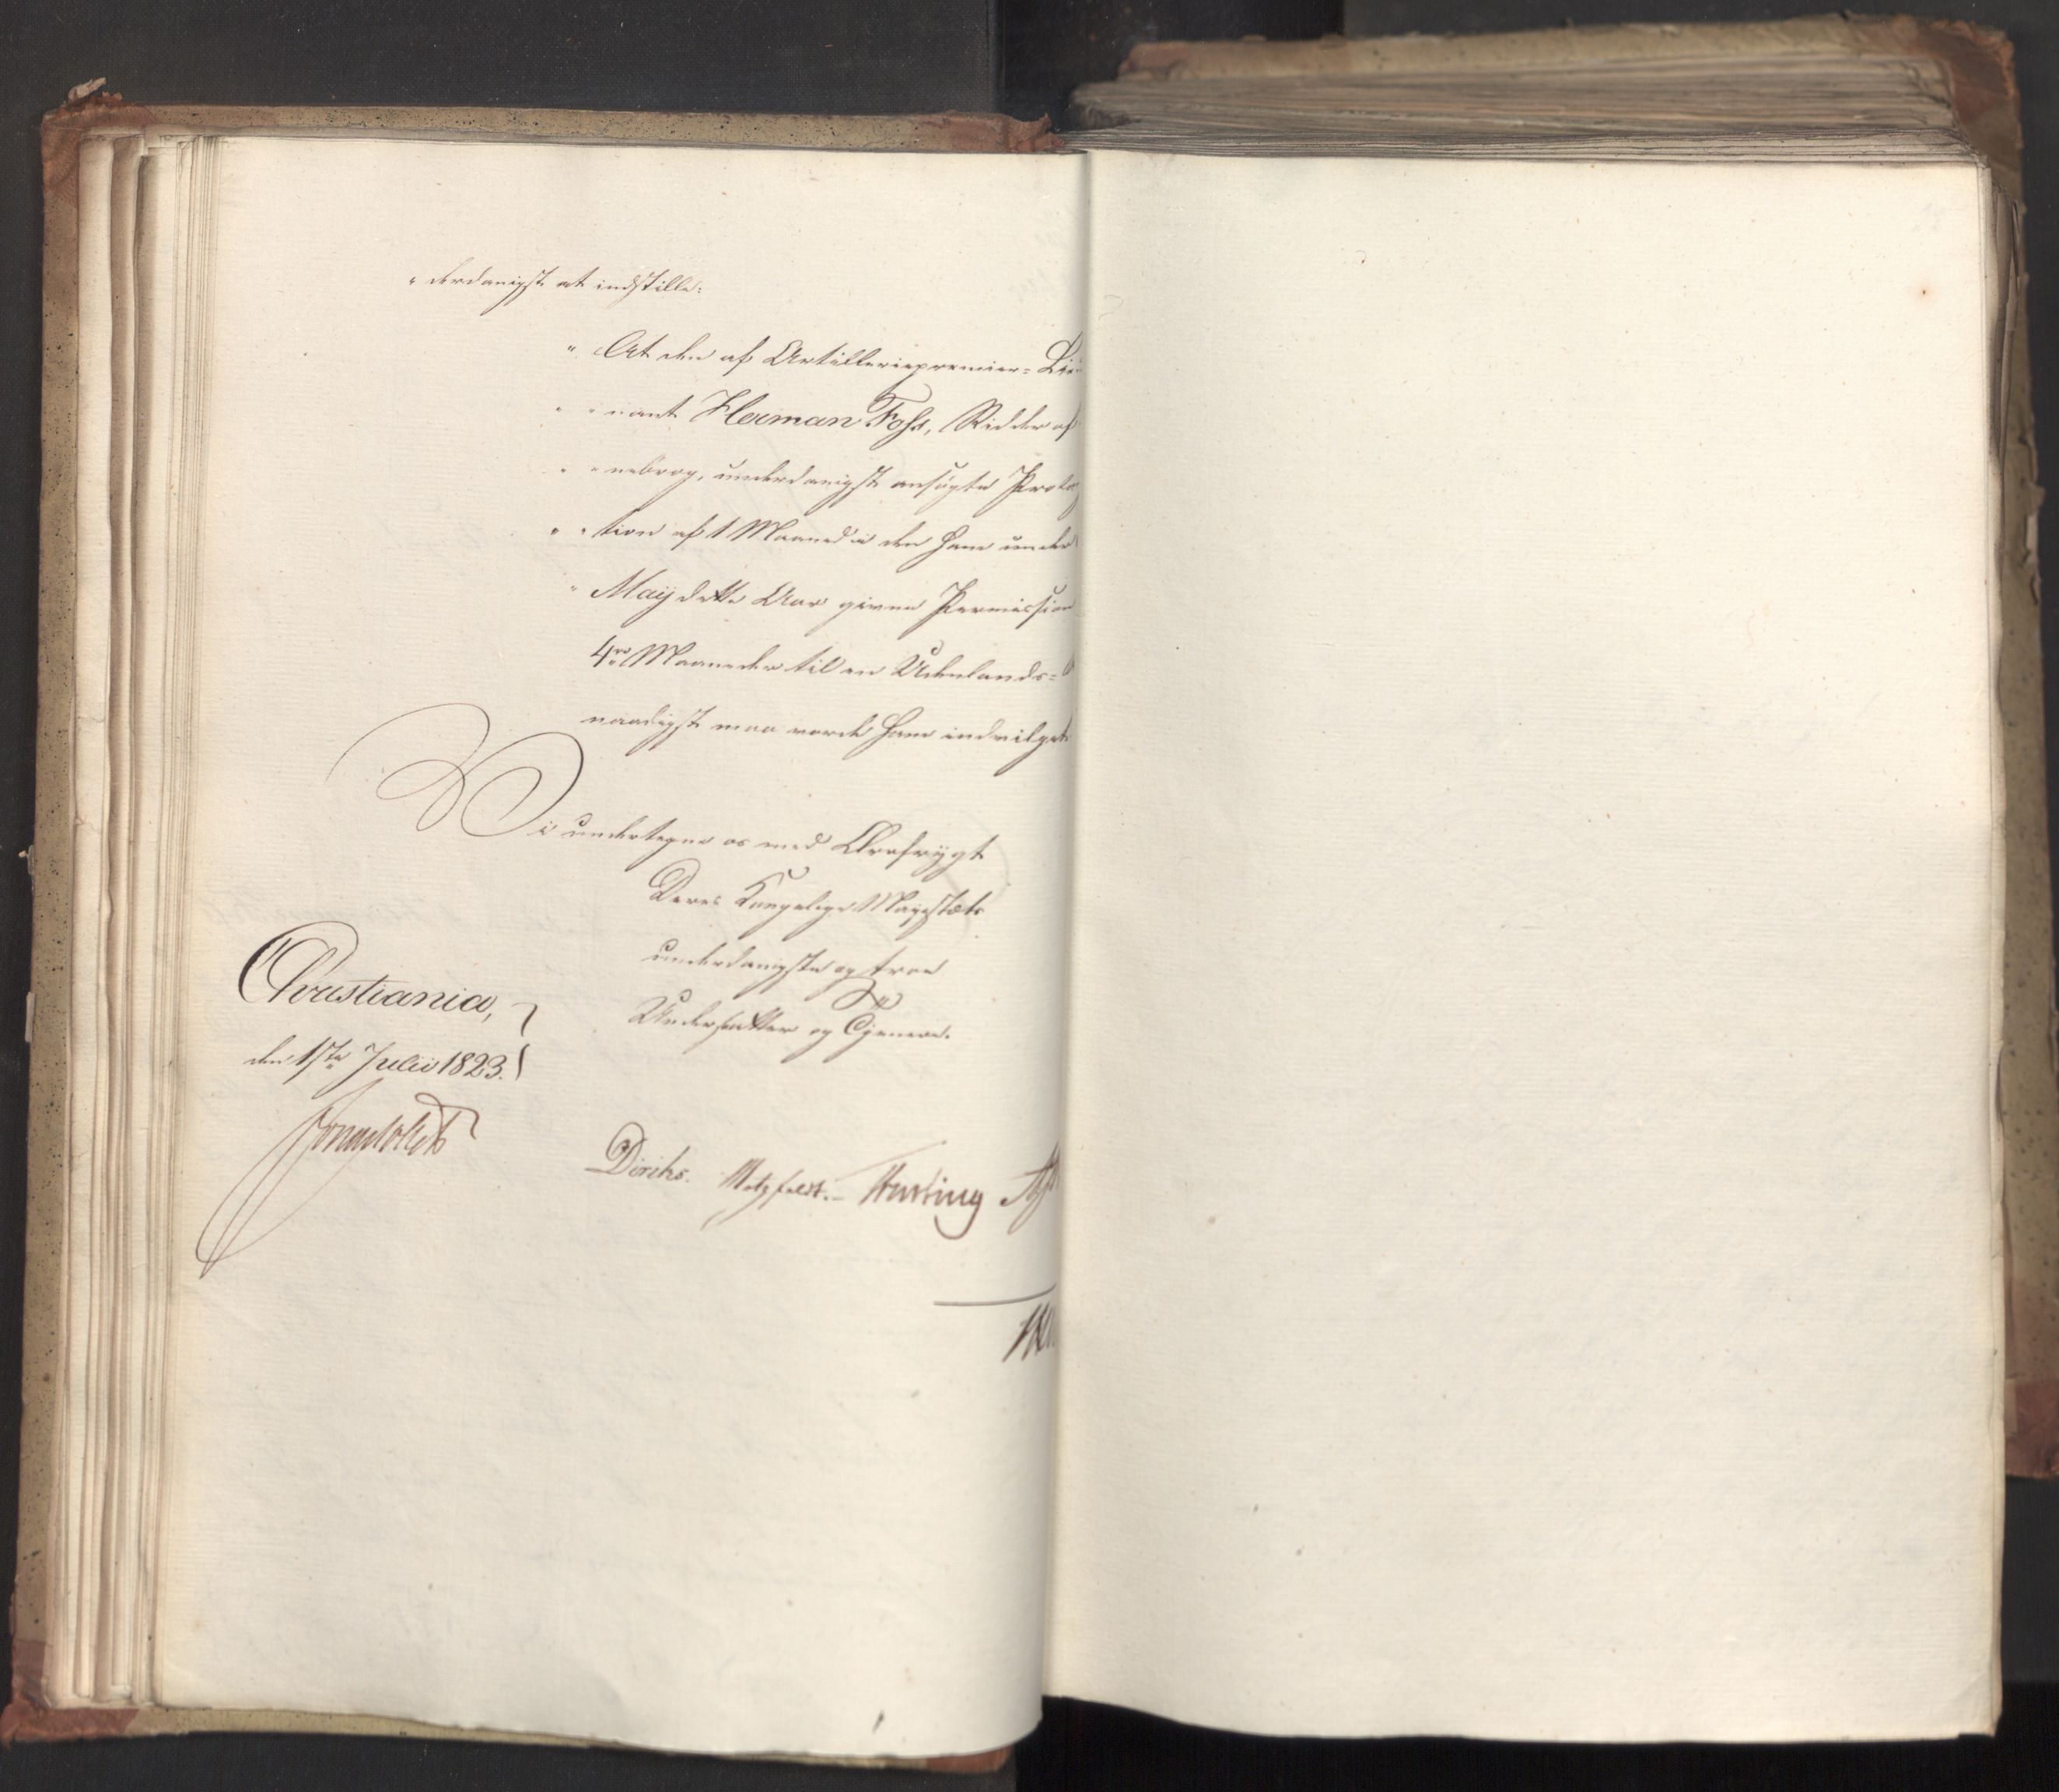 „ derdanigst at indstille:
„ At den af Artilleriepremier-Lieu
„ „ nant Herman Foss, Ridder af
„ „ nebrog, underdanigst ansøgte Prolog
„ „ tion af 1 Maaned i den ham under
„ May dette Aar givne Permission
4re Maaneder til en Udenlands-
naadigst maa vorde ham indvilget
Vi undertegne os med Ærefrygt
Deres Kongelige Majestæts
underdanigste og troe
Undersaatter og Tjenere.
Christiania,
den 1ste Julii 1823.
Diriks. Motzfeldt. Hersleb